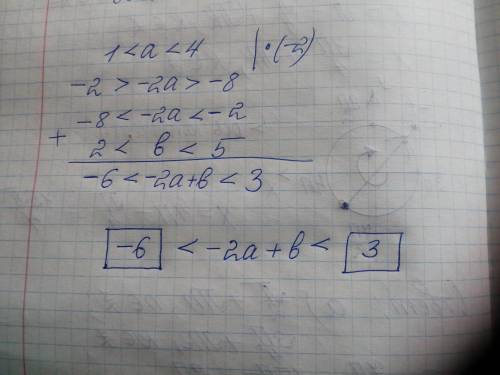 1 < a < 4 | · (-2)
-2 > -2a > -8
-8 < -2a < -2
+
2 < b < 5
-6 < -2a+b < 3
-6 < -2a + b < 3